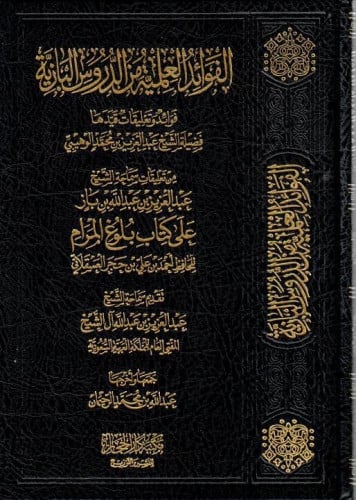 الفوائد العلمية من الدروس البازية
فوائد وتعليقات قيدها
فضيلة الشيخ عبد العزيز بن محمد الوهيبي
من تعليقات سماحة الشيخ
عبد العزيز بن عبد الله بن باز
على كتاب بلوغ المرام
للحافظ أحمد بن علي بن حجر العسقلاني
تقديم سماحة الشيخ
عبد العزيز بن عبد الله آل الشيخ
المفتي العام للمملكة العربية السعودية
عبد الله بن محمد
للنشر والتوزيع
الفوائد العلمية من الدروس البازية